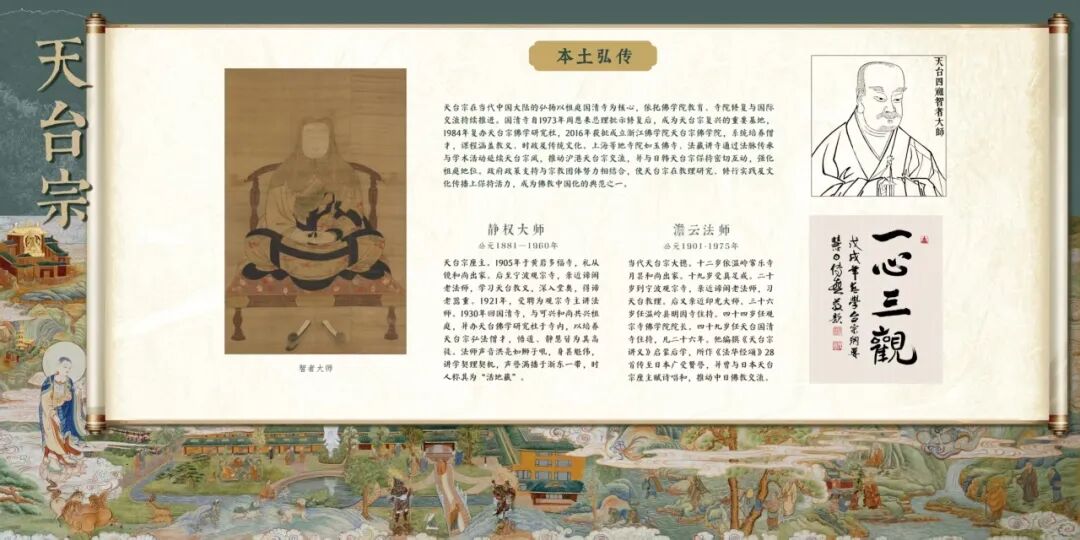 天台宗
本土弘传
天台宗在当代中国大陆的弘扬以祖庭国清寺为核心，依托佛学院教育、寺院修复与国际
交流持续推进。国清寺自1973年周恩来总理批示修复后，成为天台宗复兴的重要基地，
1984年复办天台宗佛学研究社，2016年获批成立浙江佛学院天台宗佛学院，系统培养僧
才，课程涵盖教义、时政及传统文化。上海等地寺院如玉佛寺、法藏讲寺通过法脉传承
与学术活动延续天台宗风，推动沪港天台宗交流，并与日韩天台宗保持密切互动，强化
祖庭地位。政府政策支持与宗教团体努力相结合，使天台宗在教理研究、修行实践及文
化传播上保持活力，成为佛教中国化的典范之一。
静权大师
公元1881—1960年
天台宗座主。1905年于黄岩多福寺，礼从
镜和尚出家。后至宁波观宗寺，亲近谛闲
老法师，学习天台教义，深入堂奥，得谛
老器重。1921年，受聘为观宗寺主讲法
师。1930年回国清寺，与可兴和尚共兴祖
庭，并办天台佛学研究社于寺内，以培养
天台宗弘法僧才，悟道、静慧皆为其高
徒。法师声音洪亮如狮子吼，身甚魁伟，
讲学契理契机，声誉满播于浙东一带，时
人称其为“活地藏”。
澹云法师
公元1901-1975年
当代天台宗大德。十二岁依温岭常乐寺
月昙和尚出家。十九岁受具足戒。二十
岁到宁波观宗寺，亲近谛闲老法师，习
天台教理。后又亲近印光大师。三十六
岁任温岭县明因寺住持。四十四岁任观
宗寺佛学院院长。四十九岁任天台国清
寺住持，凡二十六年。他编撰《天台宗
讲义》启蒙后学，所作《法华经颂》28
首传至日本广受赞誉，并曾与日本天台
宗座主赋诗唱和，推动中日佛教交流。
智者大师
天台四祖智者大師
一心三觀
戊戌年